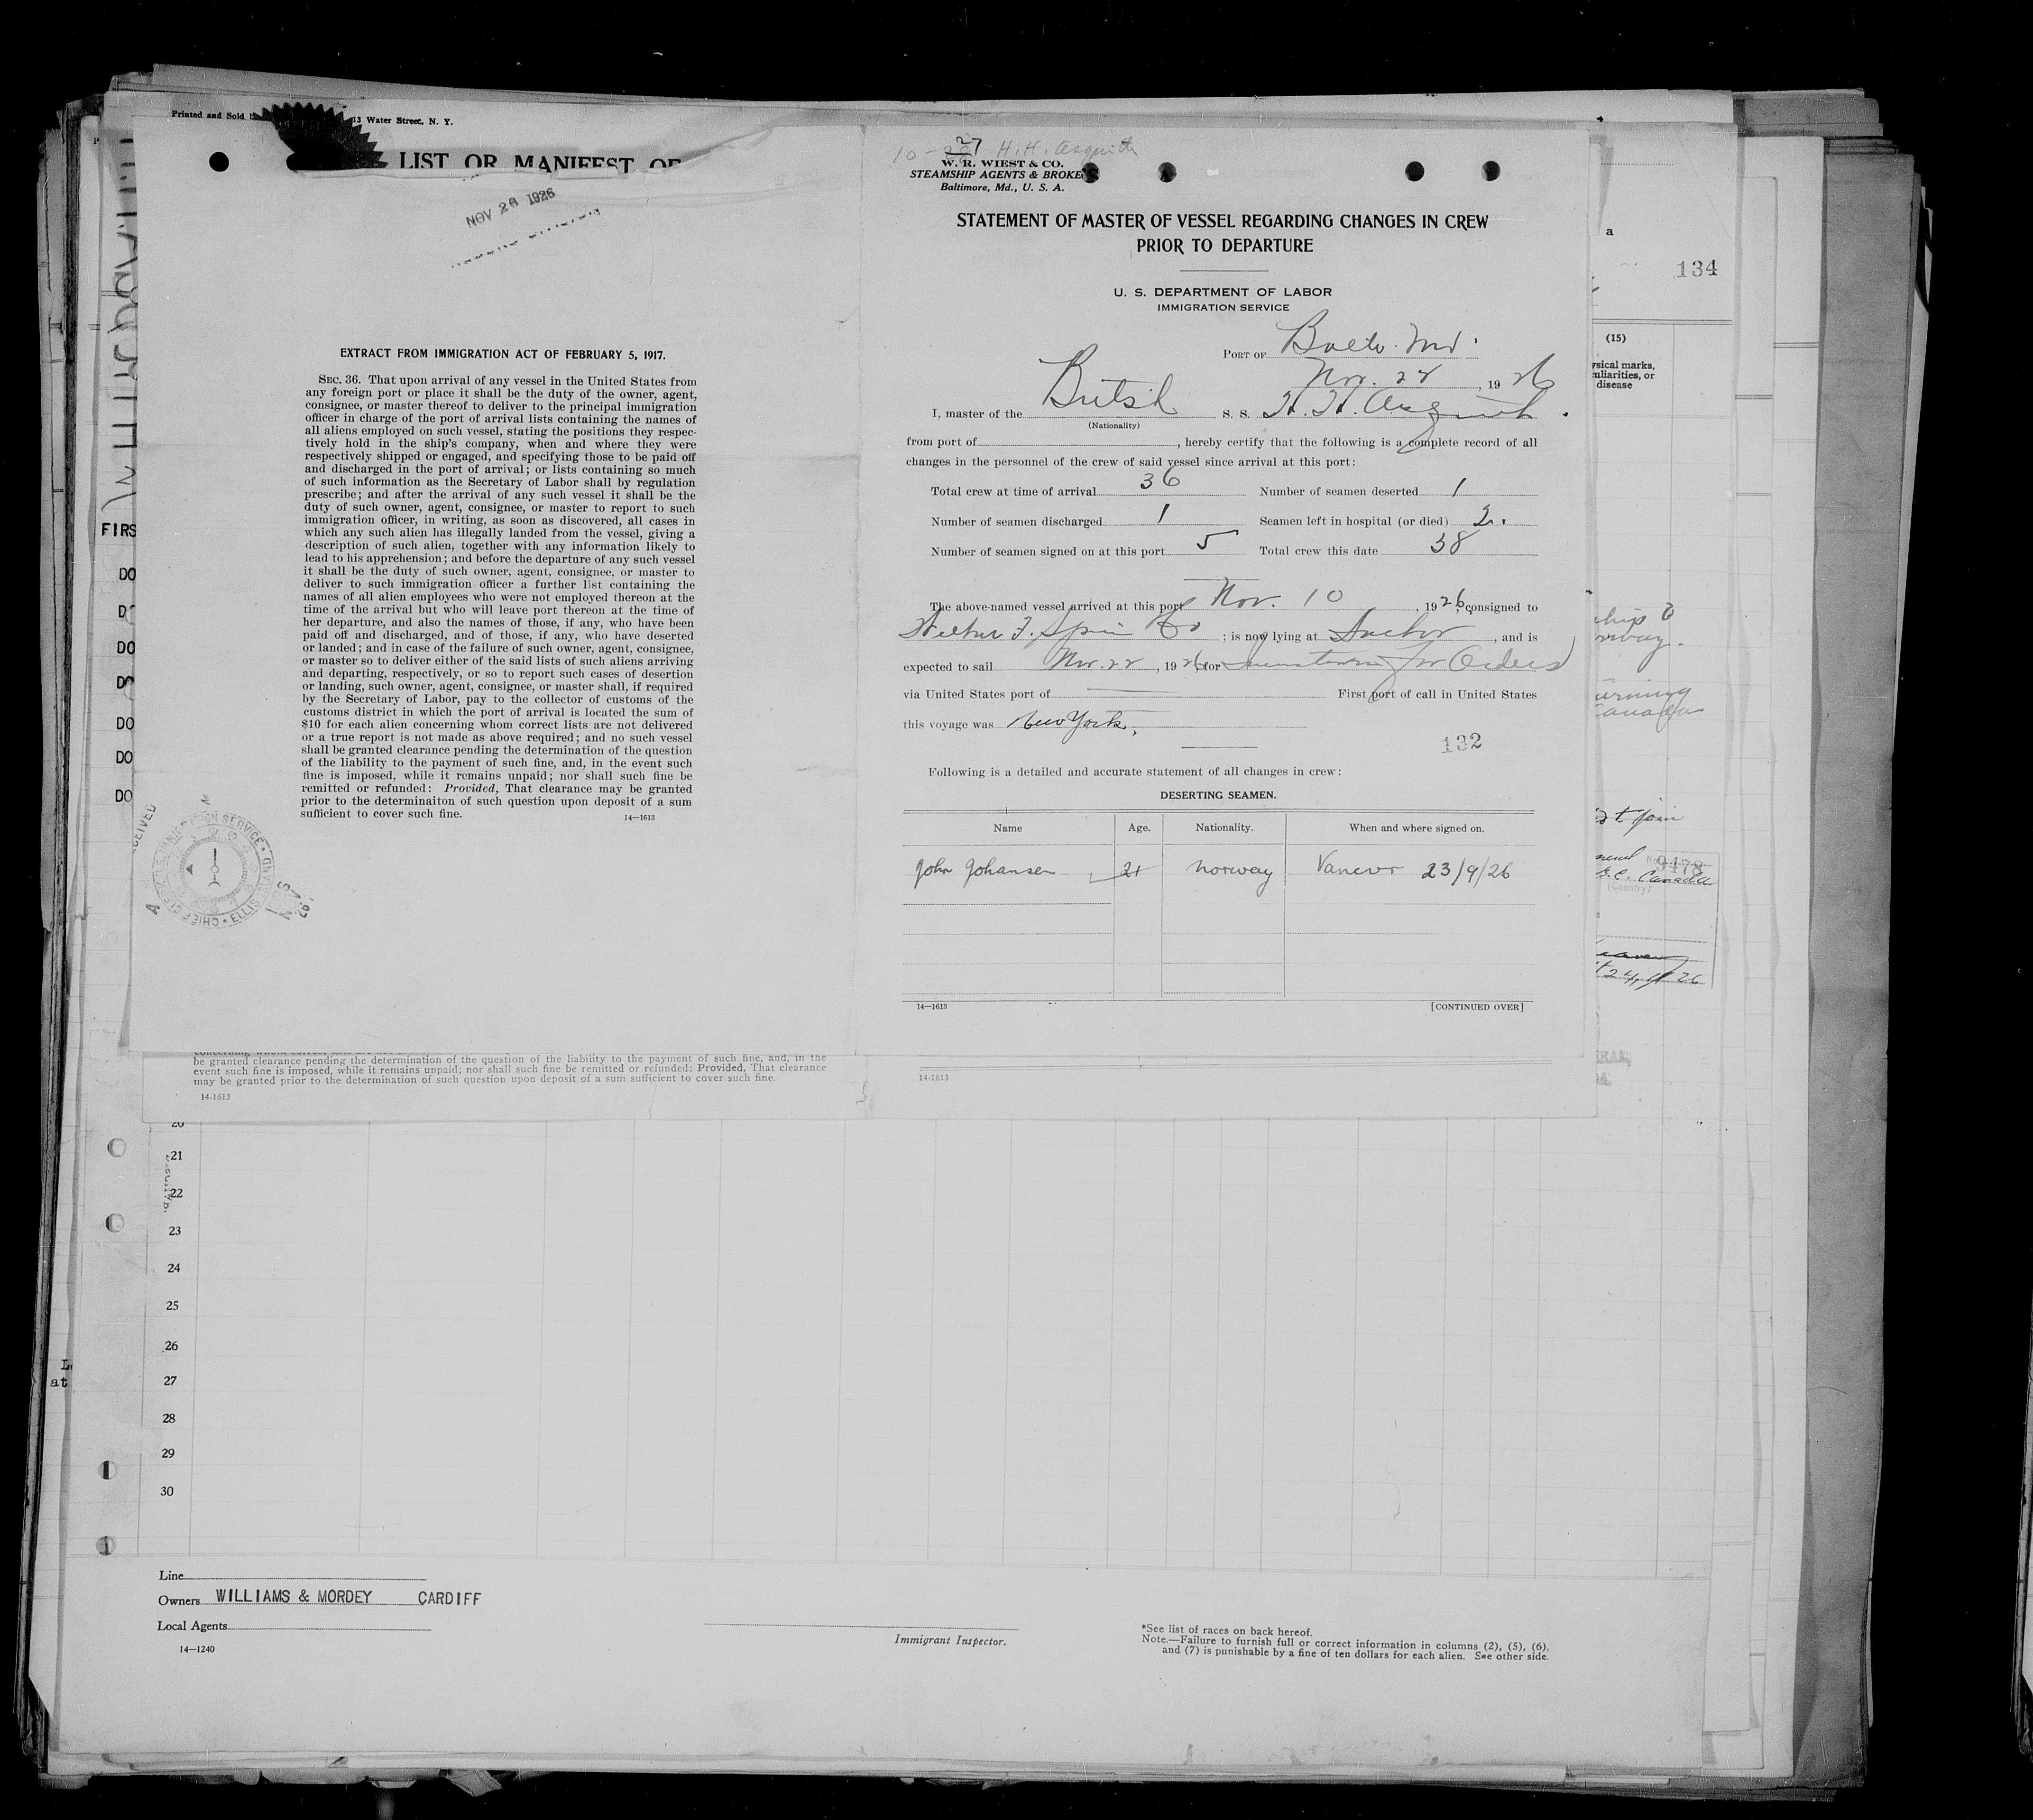 Printed and Sold
13 Water Street, N. Y.
LIST OR MANIFEST OF
NOV 26 1926
EXTRACT FROM IMMIGRATION ACT OF FEBRUARY 5, 1917.
SEC. 36. That upon arrival of any vessel in the United States from
any foreign port or place it shall be the duty of the owner, agent,
consignee, or master thereof to deliver to the principal immigration
officer in charge of the port of arrival lists containing the names of
all aliens employed on such vessel, stating the positions they respec-
tively hold in the ship's company, when and where they were
respectively shipped or engaged, and specifying those to be paid off
and discharged in the port of arrival; or lists containing so much
of such information as the Secretary of Labor shall by regulation
prescribe; and after the arrival of any such vessel it shall be the
duty of such owner, agent, consignee, or master to report to such
immigration officer, in writing, as soon as discovered, all cases in
which any such alien has illegally landed from the vessel, giving a
description of such alien, together with any information likely to
lead to his apprehension; and before the departure of any such vessel
it shall be the duty of such owner, agent, consignee, or master to
deliver to such immigration officer a further list containing the
names of all alien employees who were not employed thereon at the
time of the arrival but who will leave port thereon at the time of
her departure, and also the names of those, if any, who have been
paid off and discharged, and of those, if any, who have deserted
or landed; and in case of the failure of such owner, agent, consignee,
or master so to deliver either of the said lists of such aliens arriving
and departing, respectively, or so to report such cases of desertion
or landing, such owner, agent, consignee, or master shall, if required
by the Secretary of Labor, pay to the collector of customs of the
customs district in which the port of arrival is located the sum of
$10 for each alien concerning whom correct lists are not delivered
or a true report is not made as above required; and no such vessel
shall be granted clearance pending the determination of the question
of the liability to the payment of such fine, and, in the event such
fine is imposed, while it remains unpaid; nor shall such fine be
remitted or refunded: Provided, That clearance may be granted
prior to the determinaiton of such question upon deposit of a sum
sufficient to cover such fine.
14—1613
FIRS
DO
DO
DO
DO
DO
DO
10-27 H. H. Asquith
W. R. WIEST & CO.
STEAMSHIP AGENTS & BROKE
Baltimore, Md., U. S. A.
STATEMENT OF MASTER OF VESSEL REGARDING CHANGES IN CREW
PRIOR TO DEPARTURE
U. S. DEPARTMENT OF LABOR
IMMIGRATION SERVICE
PORT OF Balto. Md.
Nov. 22, 1926
I, master of the British S. S. H. H. Asquith.
(Nationality)
from port of , hereby certify that the following is a complete record of all
changes in the personnel of the crew of said vessel since arrival at this port:
Total crew at time of arrival 36 Number of seamen deserted 1
Number of seamen discharged 1 Seamen left in hospital (or died) 2.
Number of seamen signed on at this port 5 Total crew this date 38
The above-named vessel arrived at this port Nov. 10, 1926, consigned to
F. Co ; is now lying at Anchor, and is
expected to sail Nov. 22, 1926, for Queenstown for Orders
via United States port of First port of call in United States
this voyage was New York,
132
Following is a detailed and accurate statement of all changes in crew:
DESERTING SEAMEN.
Name Age. Nationality. When and where signed on.
John Johansen 21 Norway 23/9/26
14—1613 [CONTINUED OVER]
a
134
(15)
ysical marks,
culiarities, or
disease
9478
(Country)
be granted clearance pending the determination of the question of the liability to the payment of such fine, and, in the
event such fine is imposed, while it remains unpaid; nor shall such fine be remitted or refunded: Provided, That clearance
may be granted prior to the determination of such question upon deposit of a sum sufficient to cover such fine.
14-1613
14-1613
20
21
22
23
24
25
26
27
28
29
30
Line
Owners WILLIAMS & MORDEY CARDIFF
Local Agents
14—1240
Immigrant Inspector.
*See list of races on back hereof.
Note.—Failure to furnish full or correct information in columns (2), (5), (6),
and (7) is punishable by a fine of ten dollars for each alien. See other side.